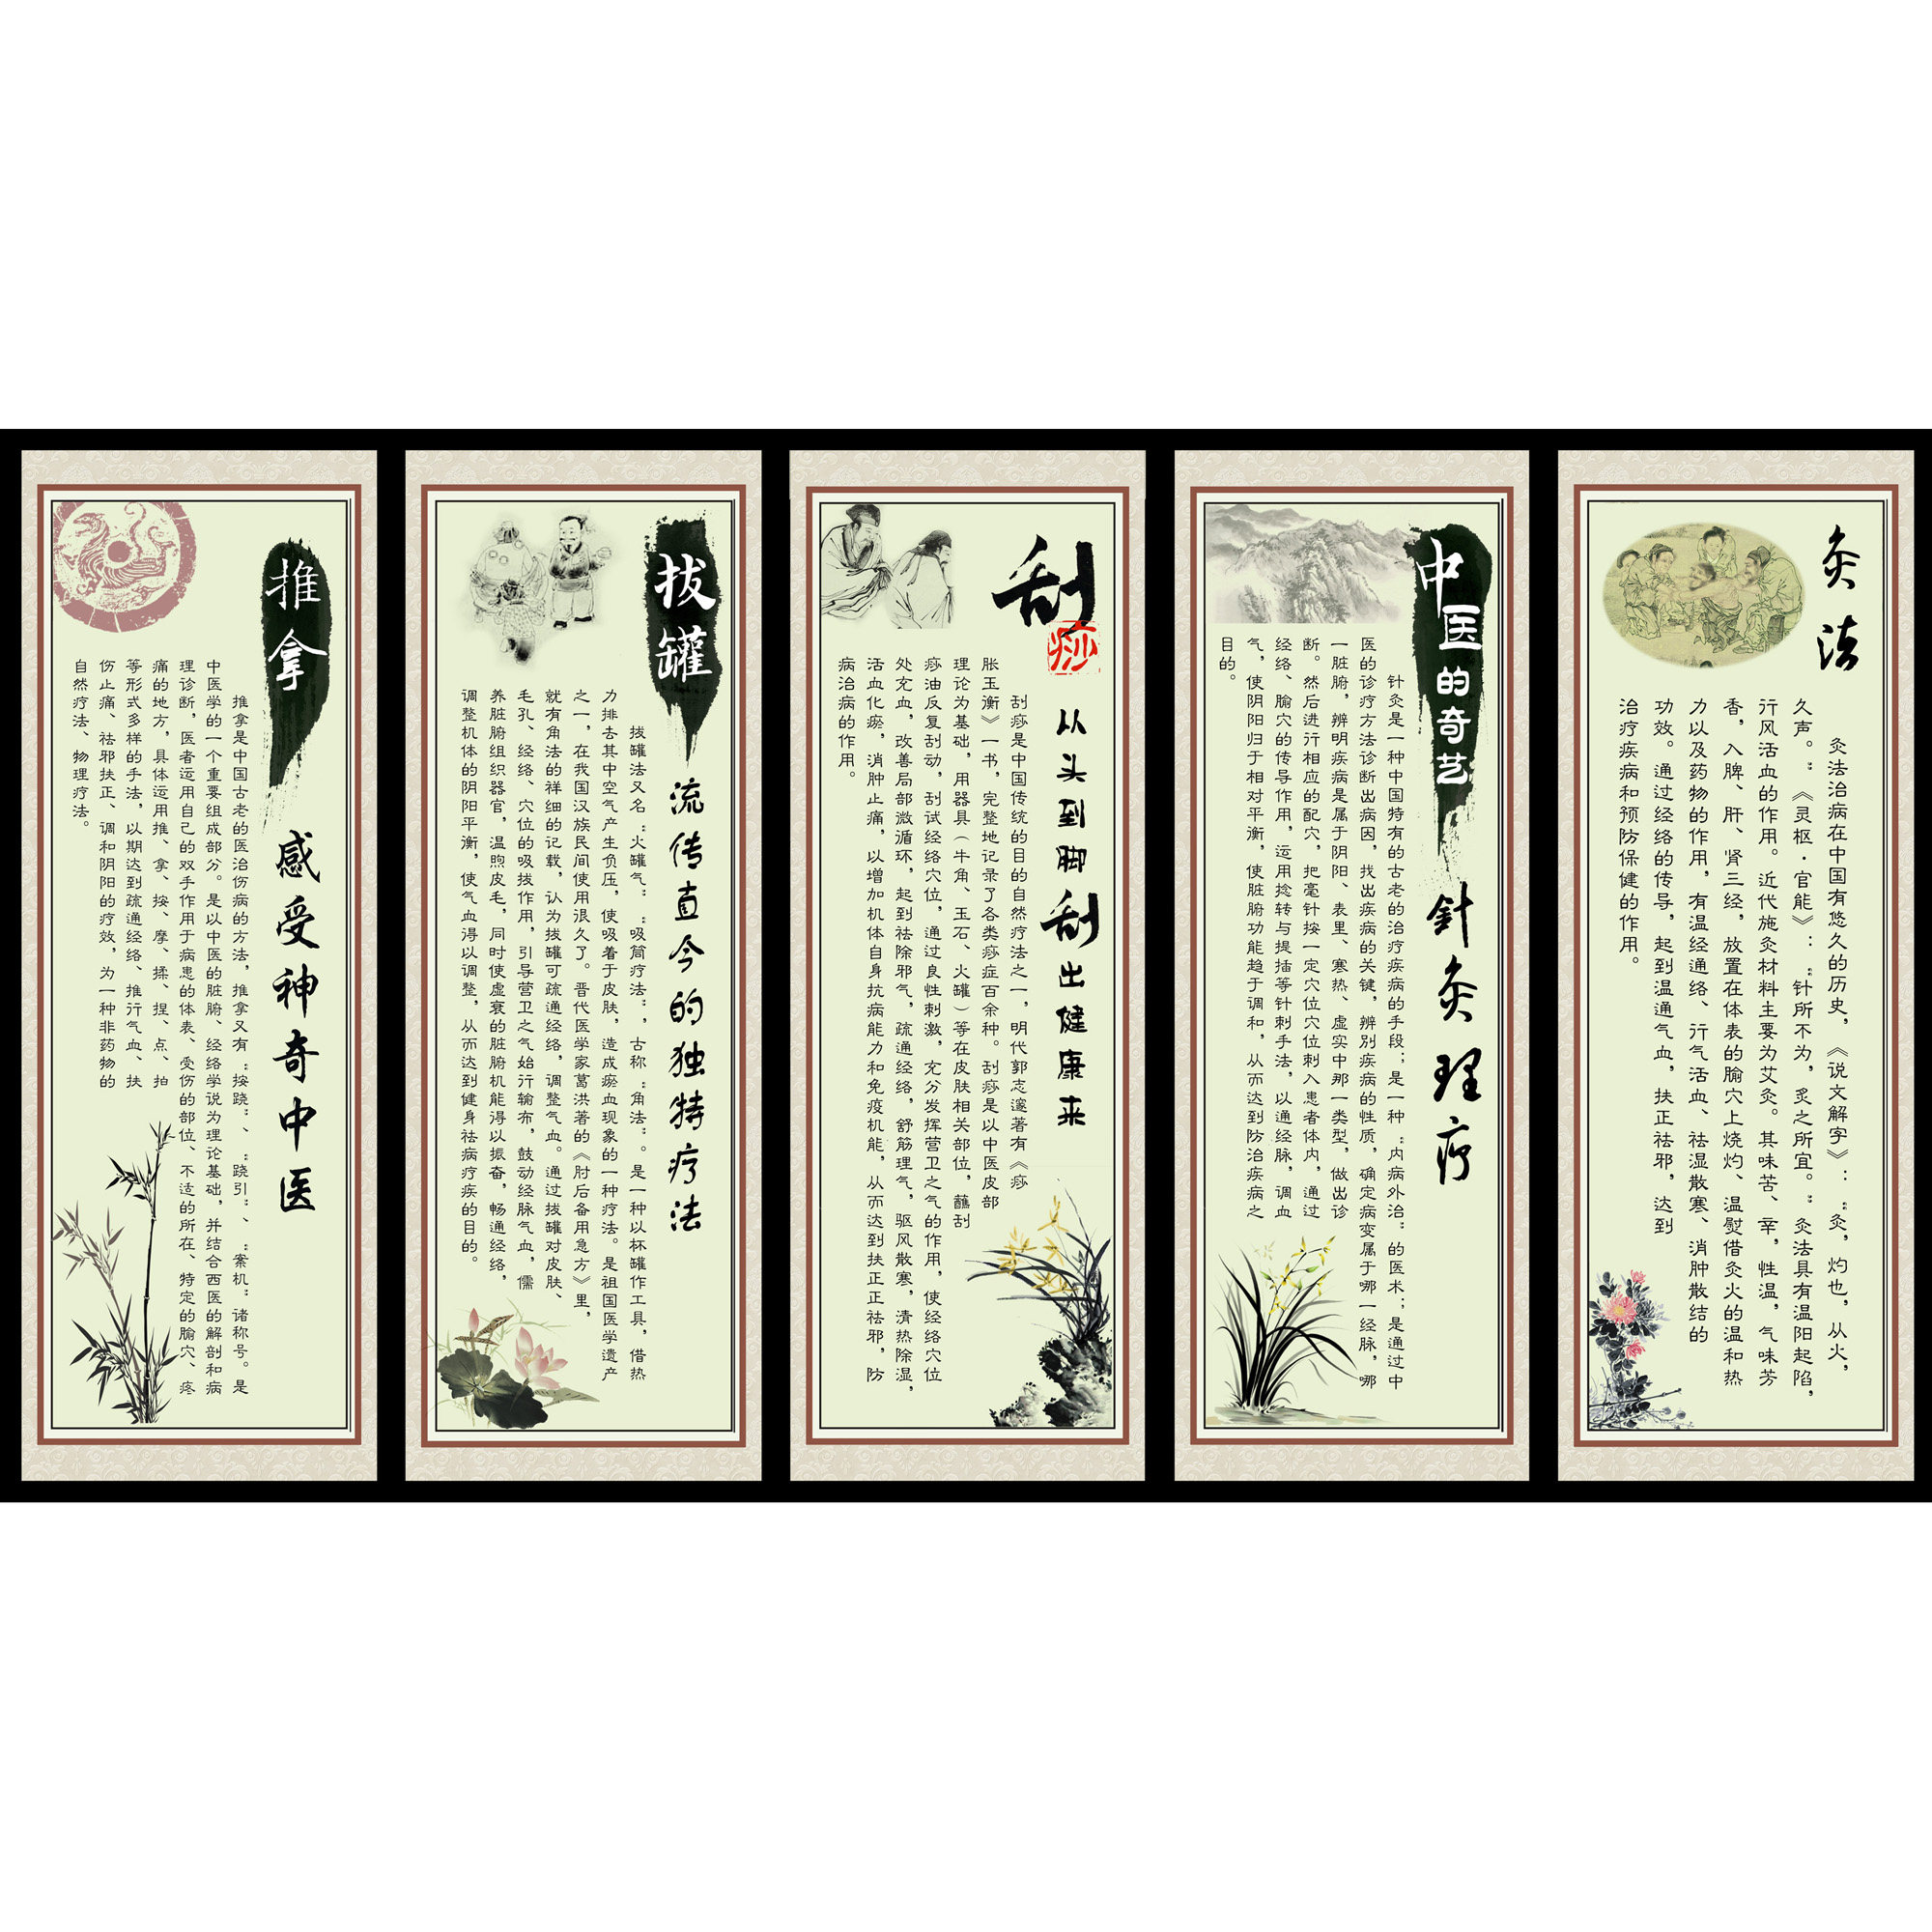 推拿
感受神奇中医
推拿是中国古老的医治伤病的方法，推拿又有“按跷”、“跷引”、“案杌”诸称号。是
中医学的一个重要组成部分。是以中医的脏腑、经络学说为理论基础，并结合西医的解剖和病
理诊断，医者运用自己的双手作用于病患的体表、受伤的部位、不适的所在、特定的腧穴、疼
痛的地方，具体运用推、拿、按、摩、揉、捏、点、拍
等形式多样的手法，以期达到疏通经络、推行气血、扶
伤止痛、祛邪扶正、调和阴阳的疗效，为一种非药物的
自然疗法、物理疗法。
拔罐
流传直今的独特疗法
拔罐法又名“火罐气”“吸筒疗法”，古称“角法”。是一种以杯罐作工具，借热
力排去其中空气产生负压，使吸着于皮肤，造成瘀血现象的一种疗法。是祖国医学遗产
之一，在我国汉族民间使用很久了。晋代医学家葛洪著的《肘后备用急方》里，
就有角法的祥细的记载，认为拔罐可疏通经络，调整气血。通过拔罐对皮肤、
毛孔、经络、穴位的吸拔作用，引导营卫之气始行输布，鼓动经脉气血，儒
养脏腑组织器官，温煦皮毛，同时使虚衰的脏腑机能得以振奋，畅通经络，
调整机体的阴阳平衡，使气血得以调整，从而达到健身祛病疗疾的目的。
刮痧
从头到脚刮出健康来
刮痧是中国传统的目的自然疗法之一，明代郭志邃著有《痧
胀玉衡》一书，完整地记录了各类痧症百余种。刮痧是以中医皮部
理论为基础，用器具（牛角、玉石、火罐）等在皮肤相关部位，蘸刮
痧油反复刮动，刮试经络穴位，通过良性刺激，充分发挥营卫之气的作用，使经络穴位
处充血，改善局部微循环，起到祛除邪气，疏通经络，舒筋理气，驱风散寒，清热除湿，
活血化瘀，消肿止痛，以增加机体自身抗病能力和免疫机能，从而达到扶正正祛邪，防
病治病的作用。
中医的奇艺
針灸理疗
针灸是一种中国特有的古老的治疗疾病的手段；是一种“内病外治”的医术；是通过中
医的诊疗方法诊断出病因，找出疾病的关键，辨别疾病的性质，确定病变属于哪一经脉，哪
一脏腑，辨明疾病是属于阴阳、表里、寒热、虚实中那一类型，做出诊
断。然后进行相应的配穴，把毫针按一定穴位穴位刺入患者体内，通过
经络、腧穴的传导作用，运用捻转与提插等针刺手法，以通经脉，调血
气，使阴阳归于相对平衡，使脏腑功能趋于调和，从而达到防治疾病之
目的。
灸法
灸法治病在中国有悠久的历史，《说文解字》：“灸，灼也，从火，
久声。”《灵枢·官能》：“针所不为，炙之所宜。”灸法具有温阳起陷，
行风活血的作用。近代施灸材料主要为艾灸。其味苦、辛，性温，气味芳
香，入脾、肝、肾三经，放置在体表的腧穴上烧灼、温熨借灸火的温和热
力以及药物的作用，有温经通络、行气活血、祛湿散寒、消肿散结的
功效。通过经络的传导，起到温通气血，扶正祛邪，达到
治疗疾病和预防保健的作用。